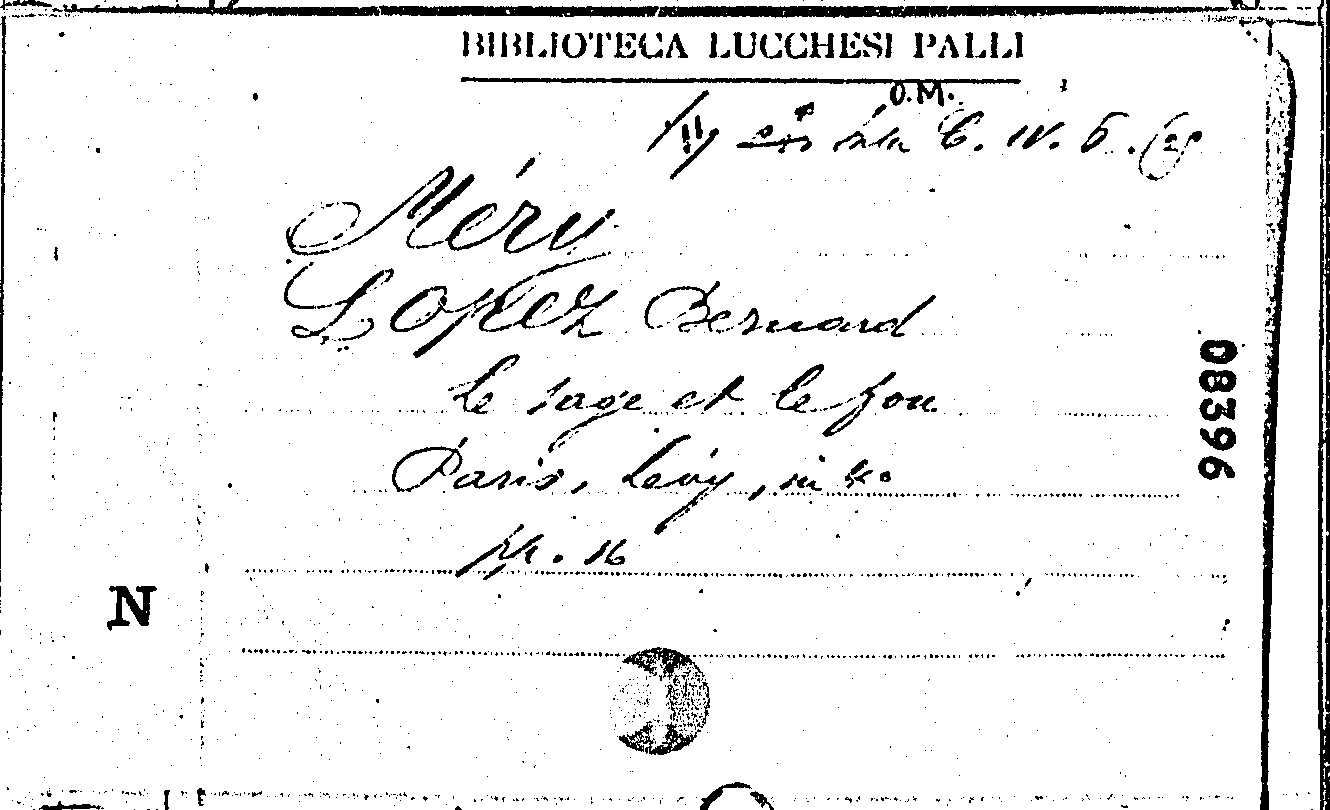 BIBLIOTECA LUCCHESI PALLI
O.M.
C. IV. 5.
Méry
Lopez Bernard
Le sage et le fou
Paris, Lévy, in 4º
pp. 16
N
08396